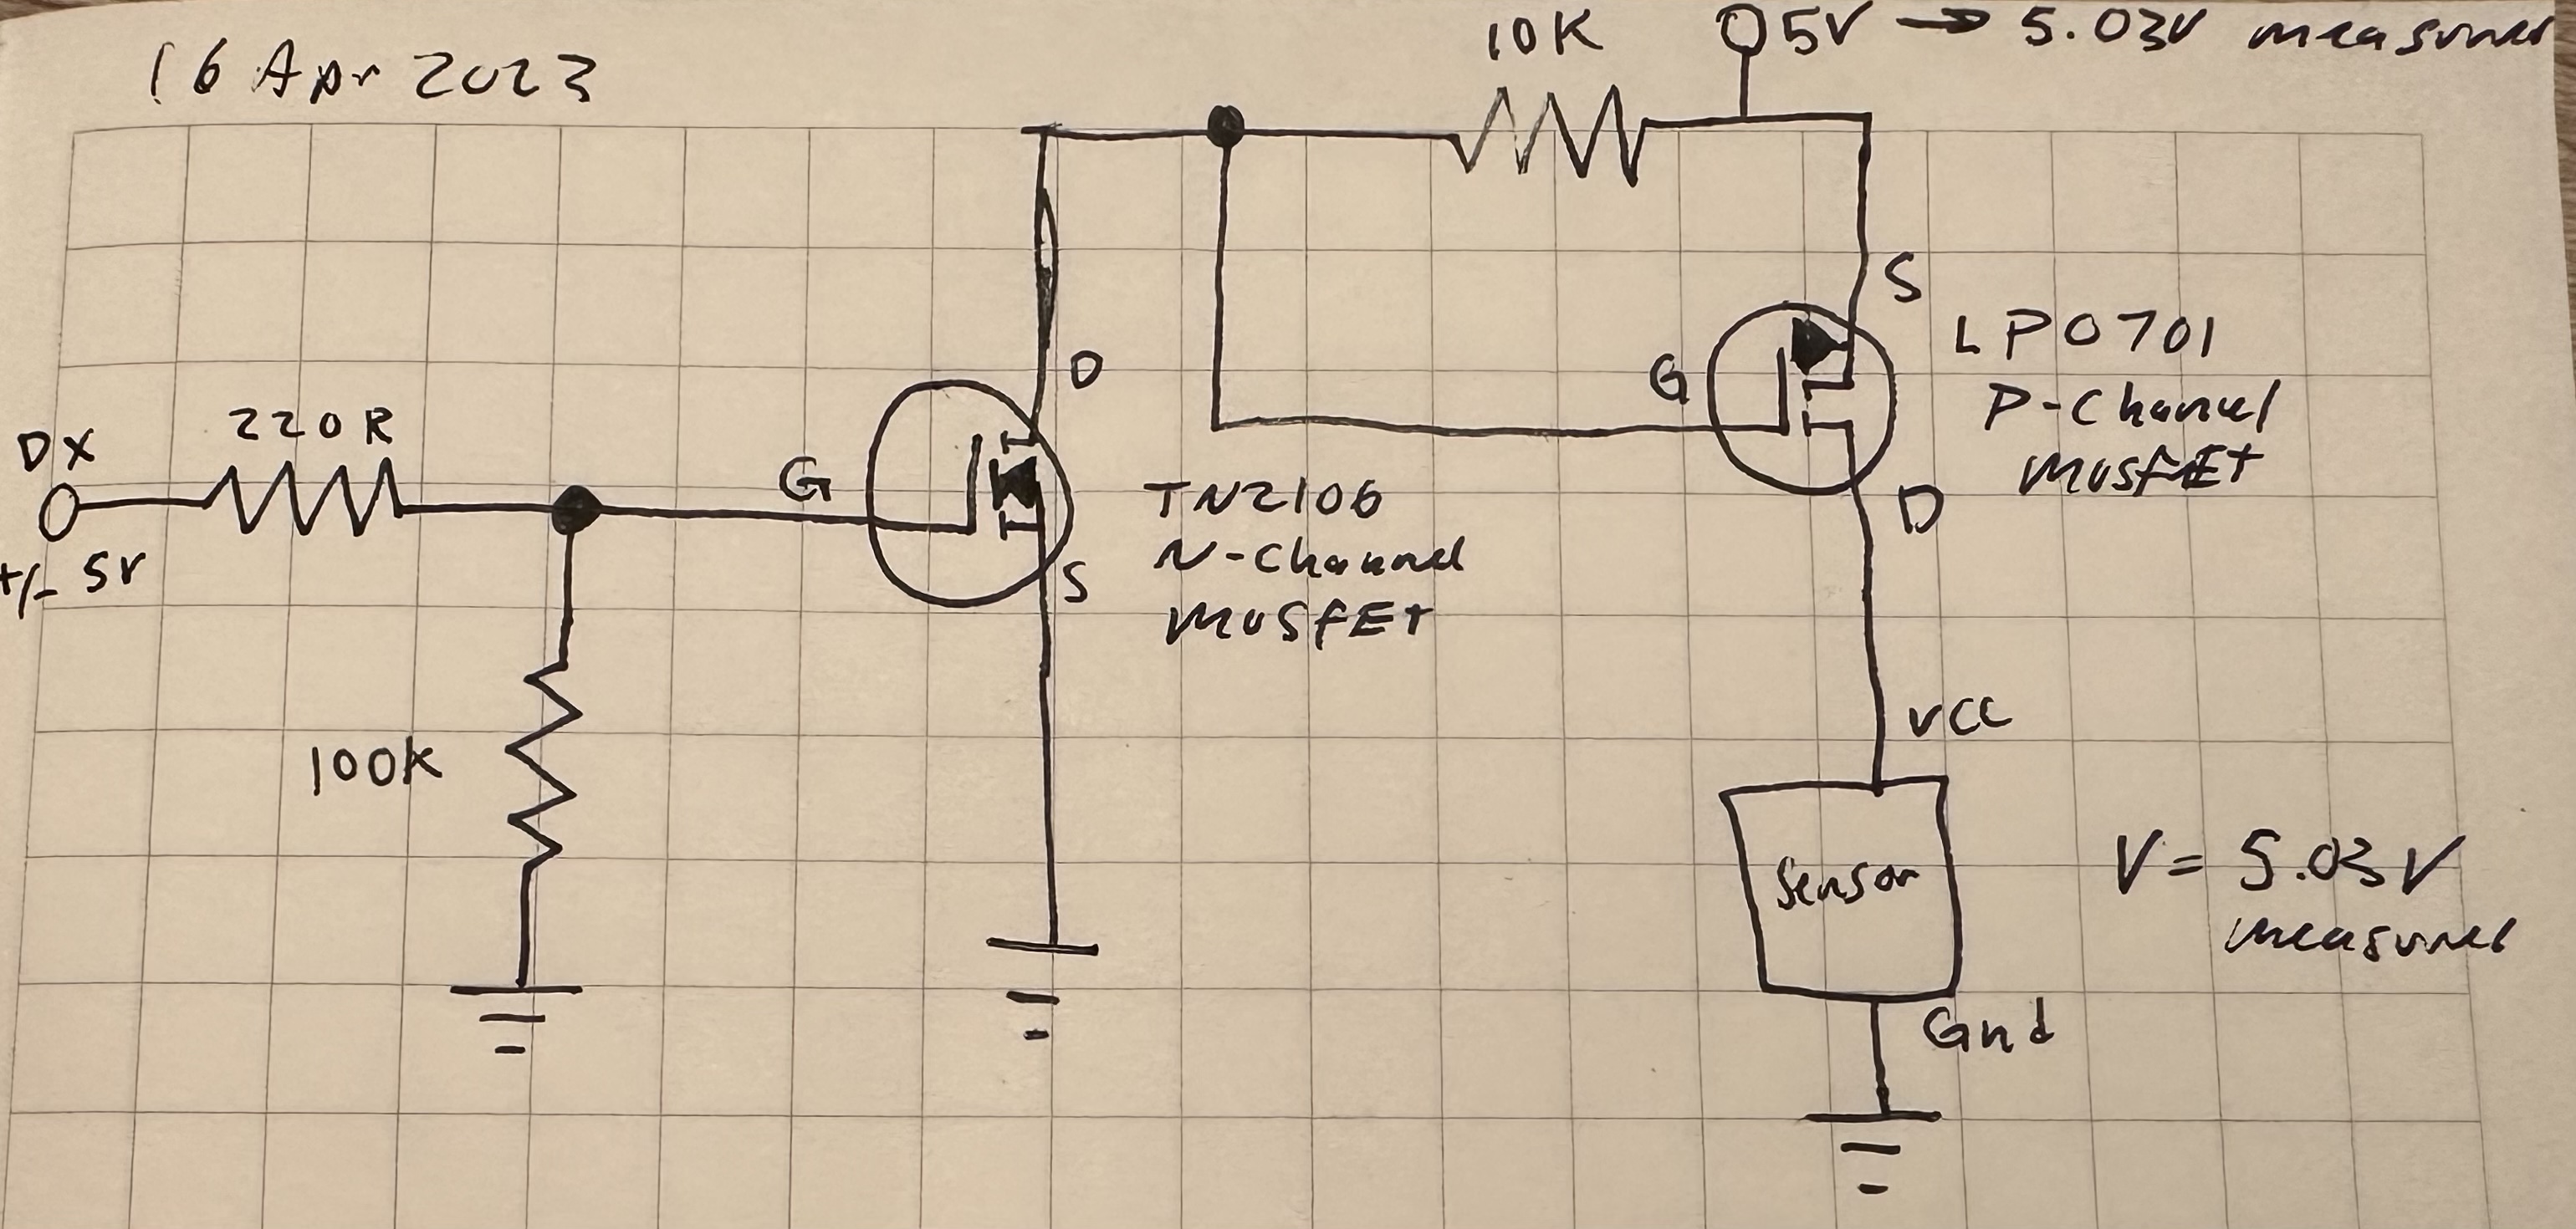 16 Apr 2023
10K
5V → 5.03V measured
S
LP0701
P-Channel
MOSFET
G
D
D
220R
DX
+/- 5V
G
TN2106
N-Channel
MOSFET
S
100K
VCC
Sensor
V = 5.03V
measured
Gnd